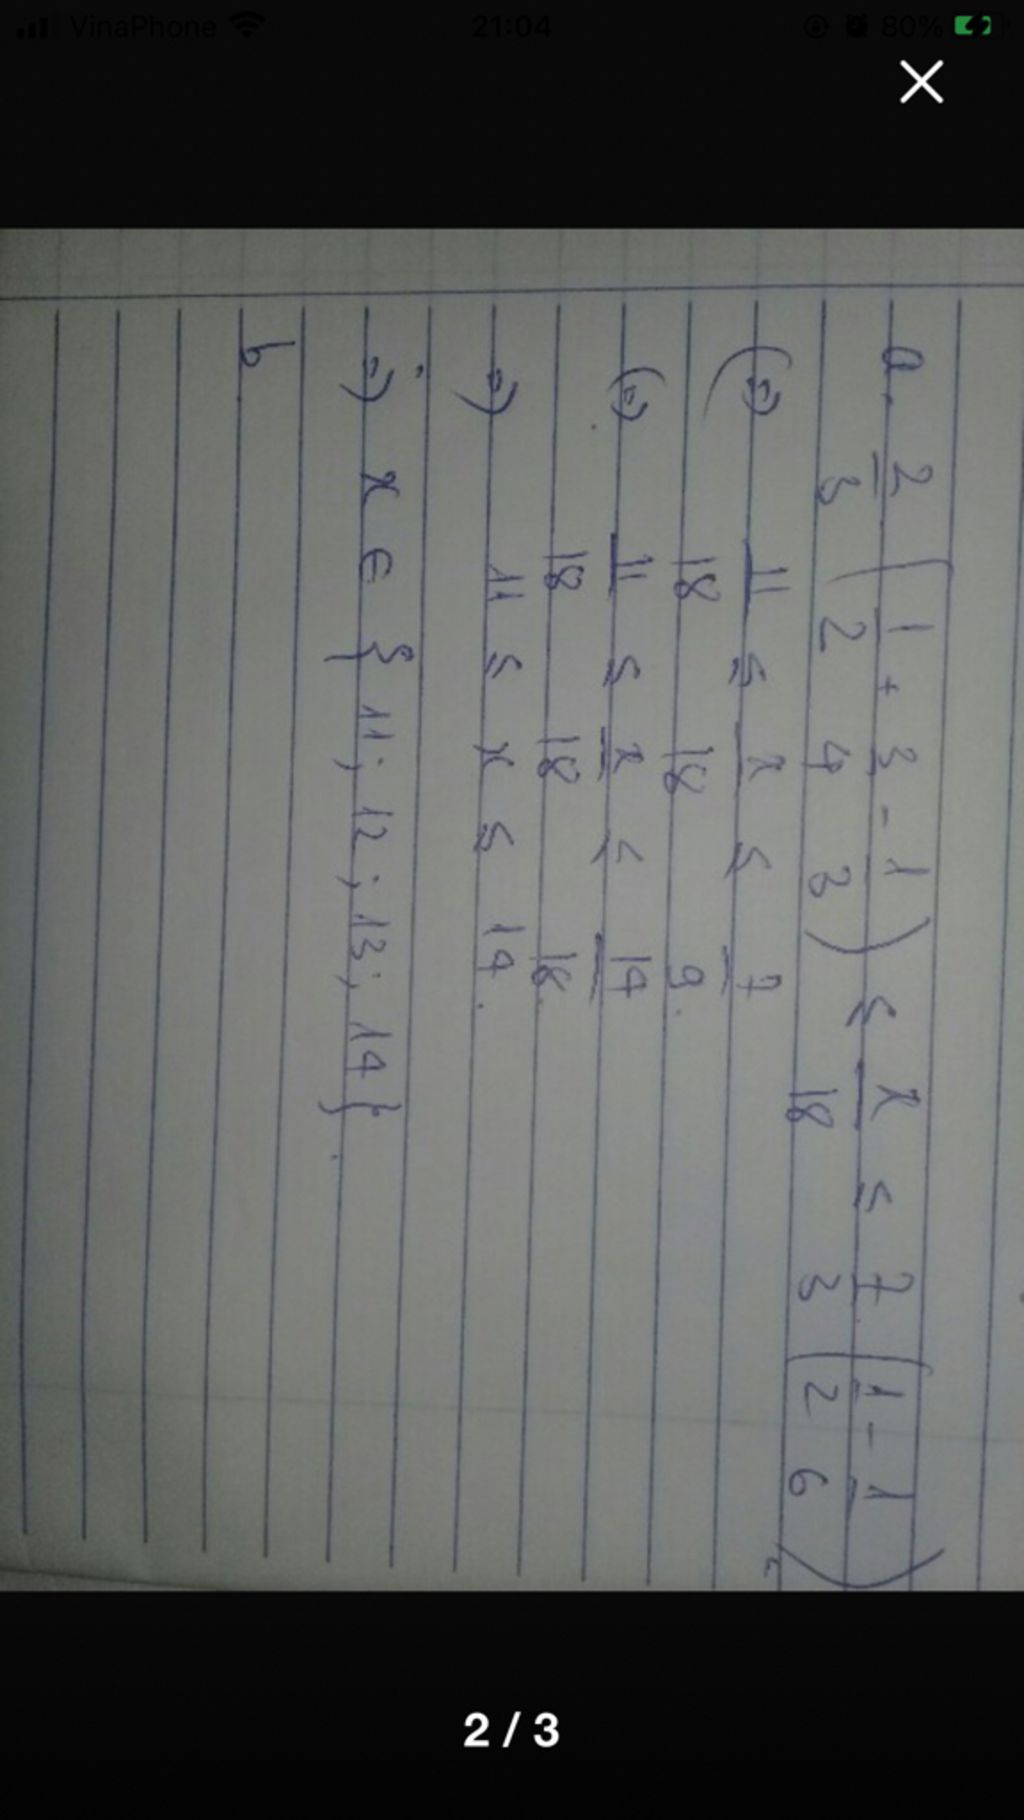 VinaPhone 21:04 80%
a. 2/3 (1/2 + 3/4 - 1/3) ≤ x/18 ≤ 7/3 (1/2 - 1/6)
(=) 11/18 ≤ x/18 ≤ 7/9.
(=) 11/18 ≤ x/18 ≤ 14/18.
=) 11 ≤ x ≤ 14.
=) x ∈ {11; 12; 13; 14}.
b
2 / 3